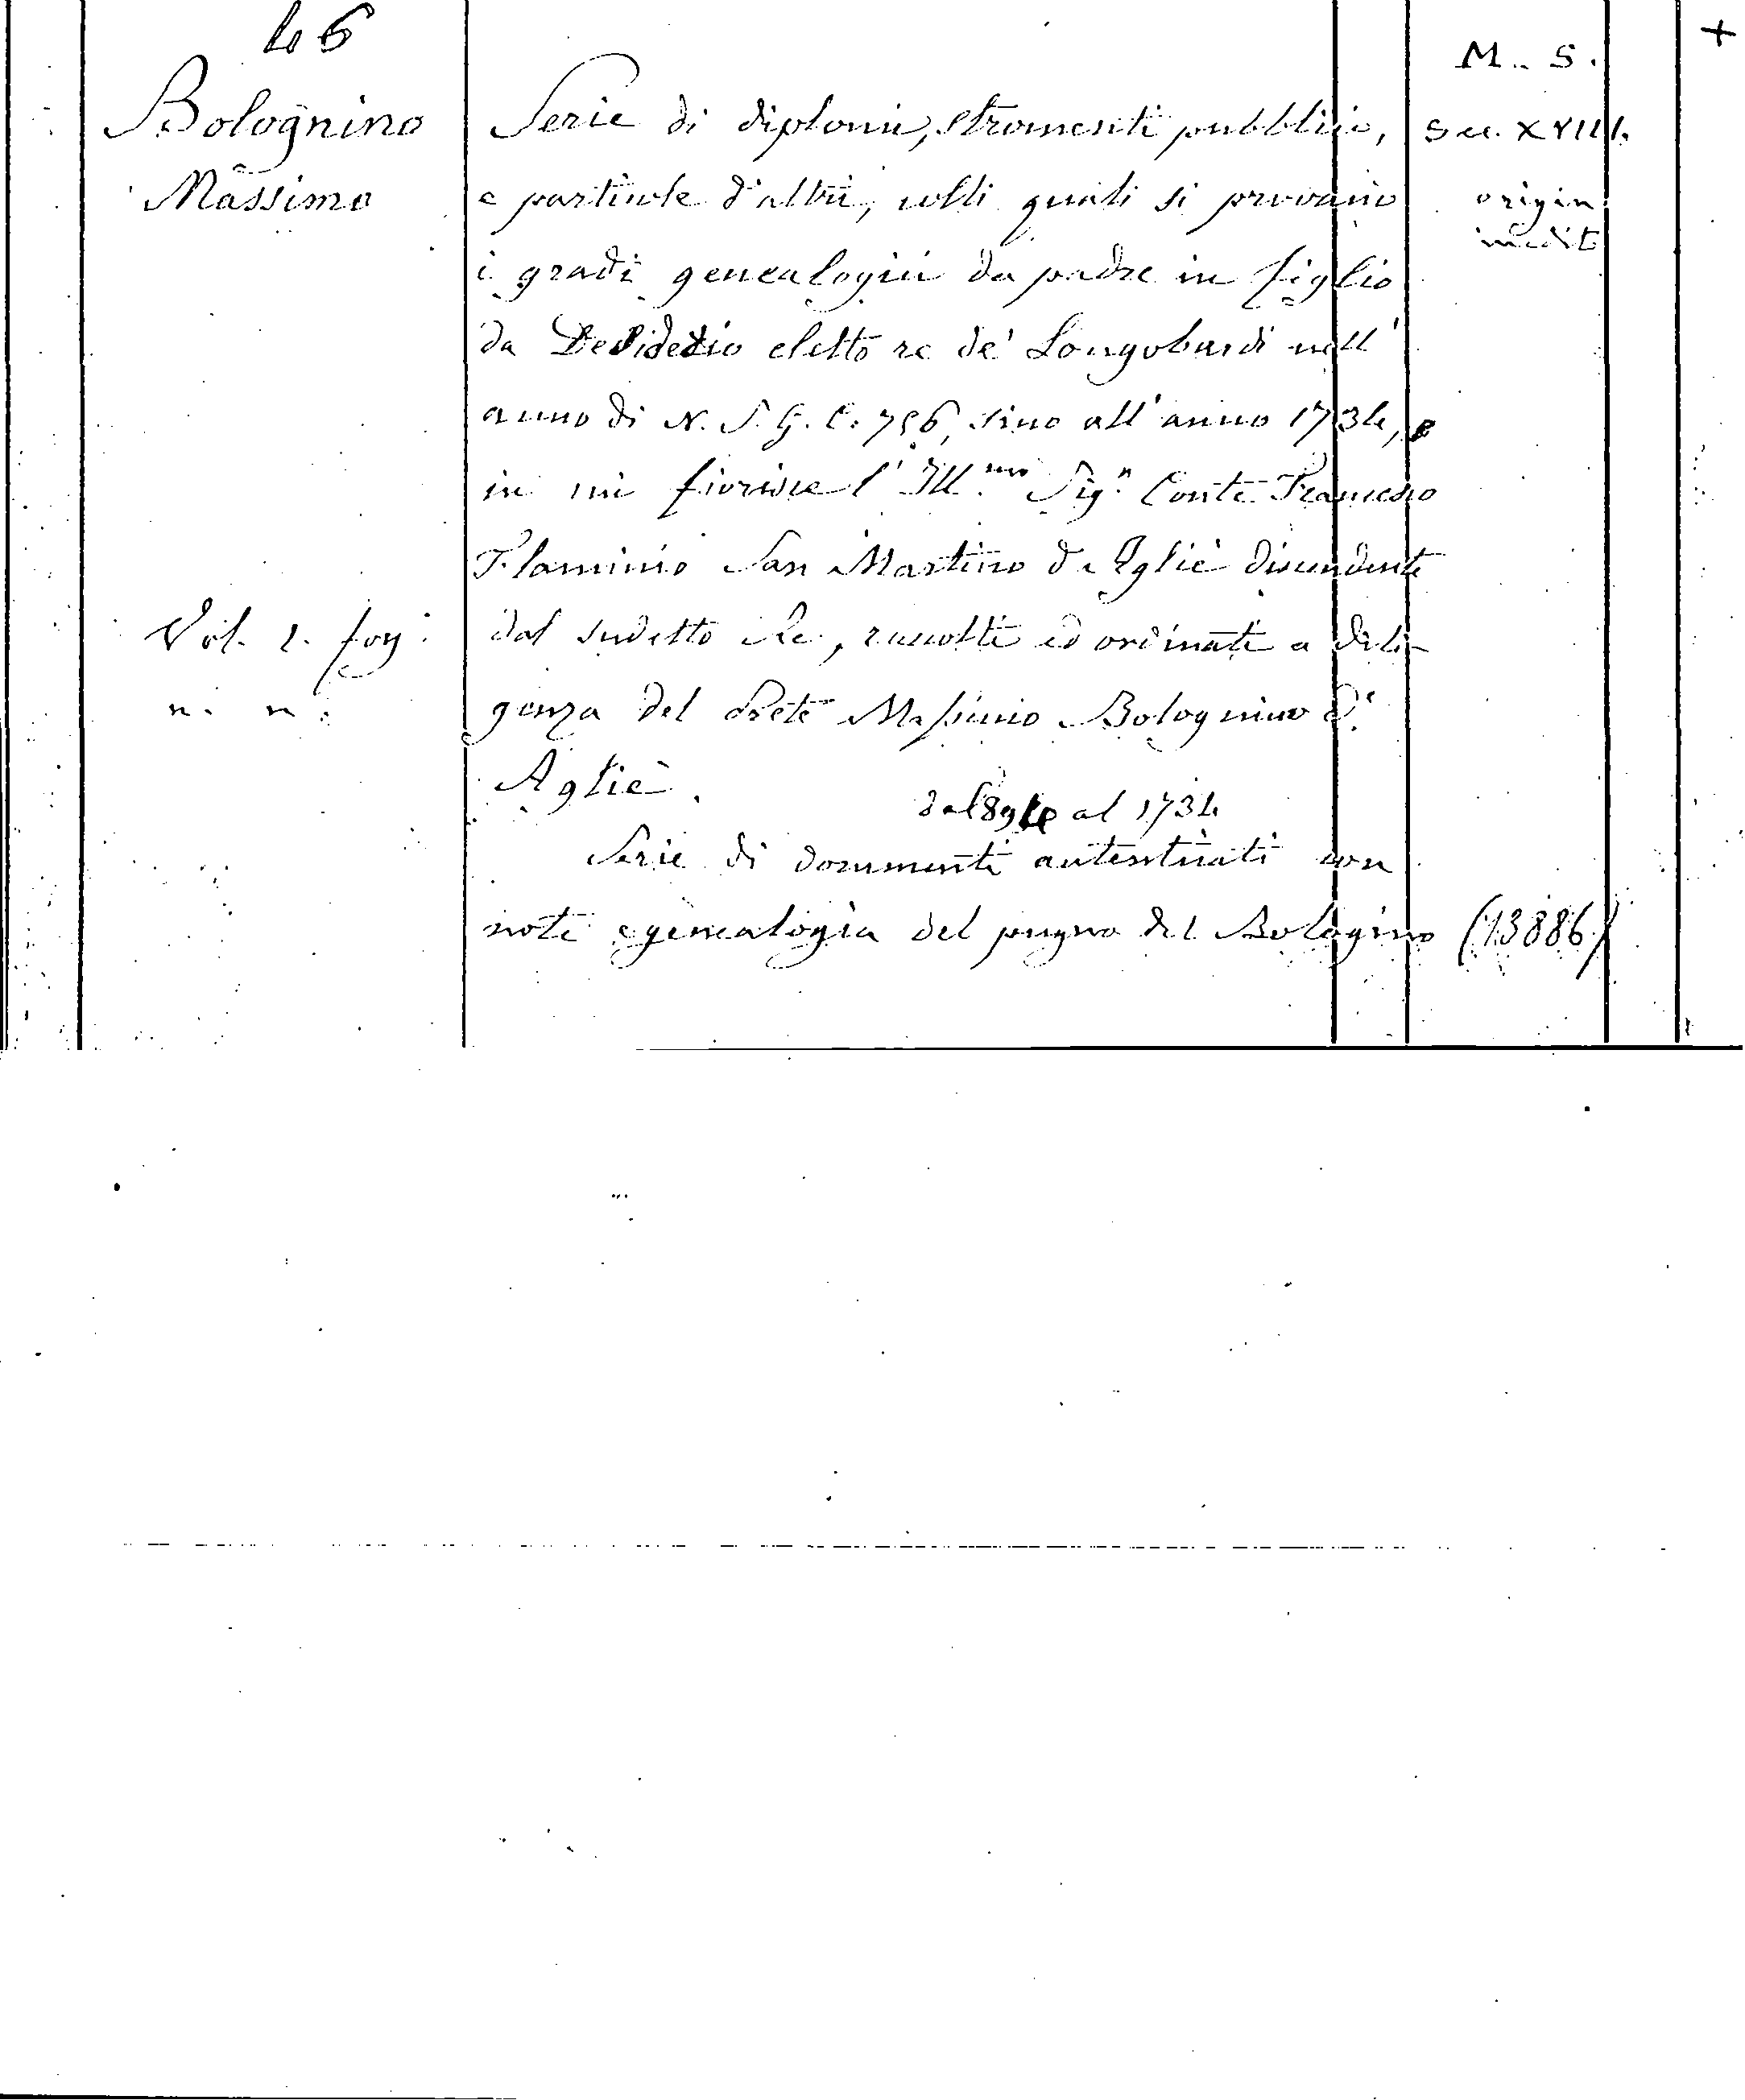 46
M. S.
+
Bolognino
Massimo
Serie di diplomi, stromenti pubblici,
e particole d'altri, colli quali si provano
i gradi genealogici da padre in figlio
da Desiderio eletto re de' Longobardi nell'
anno di N. S. G. C. 756, sino all'anno 1734, e
in cui fiorisce l'Ill.mo Sig.r Conte Francesco
Flaminio San Martino d'Agliè discendente
dal sudetto Re, raccolti ed ordinati a dili-
genza del Prete Massimo Bolognino d'
Agliè.
dal 894 al 1734
Serie di documenti autenticati con
note e genealogia del pugno del Bolognino
Sec. XVIII.
origin.
inedit.
Vol. 1. fog.
n. n.
(13886)